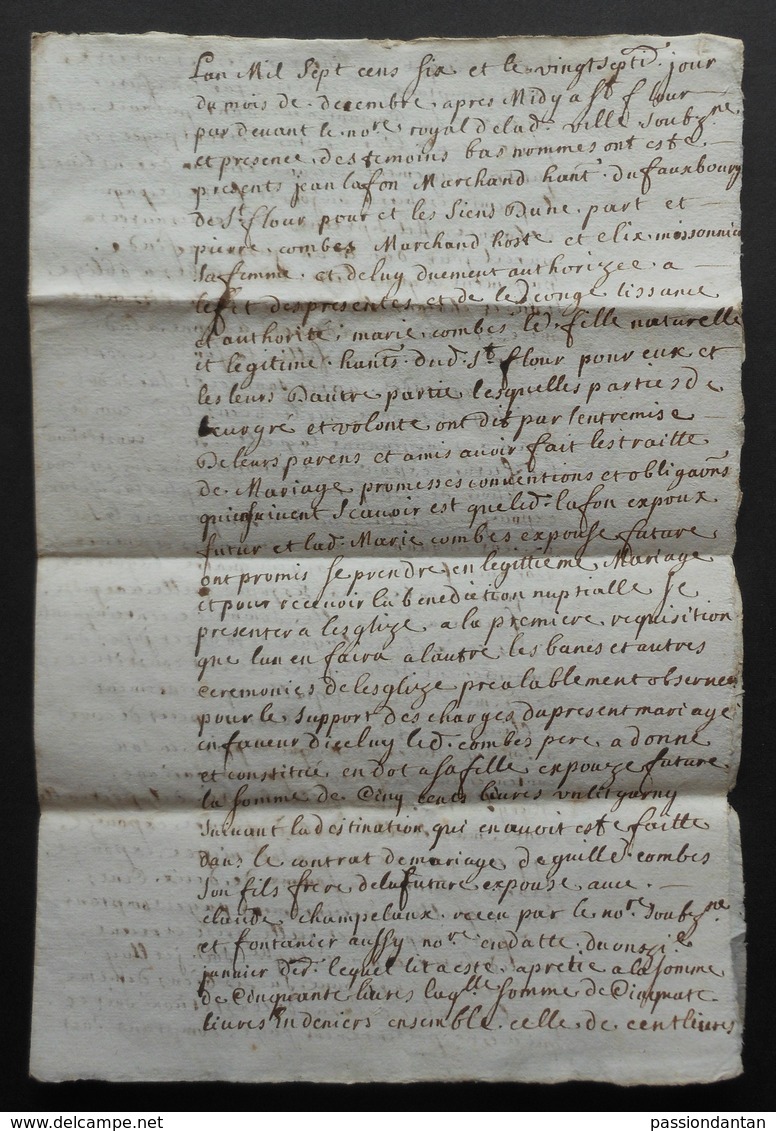 Lan Mil Sept cens six et le vingt septie. jour
du mois de. decembre. apres Midy a St flour
par devant le nore. royal de lad. ville soubzne
et presence. des temoins bas nommes ont este.
presents jean lafon Marchand hant. du fauxbourg
de St. flour pour et les siens dune. part et
pierre. combes Marchand hoste et elix missonnie
sa femme. et de luy duement authorizée a
leffet des presentes et de led. conge lissance
et authorité, marie. combes led. fille naturelle
et legitime. hants. dud. St. flour pour eux et
les leurs dautre partie lesquelles parties de
leur gré et volonté ont dit par lentremise
de leurs parens et amis avoir fait les traitte
de Mariage promesses conventions et obligaons
qui ensuivent Scavoir est que led. lafon expoux
futur et lad. Marie combes expouse future
ont promis se prendre. en legittieme Mariage
et pour recevoir la benediction nuptialle se
presenter a lesglize a la premiere requisition
que lun en faira a lautre les bancs et autres
ceremonies de lesglize prealablement observees
pour le support des charges du present mariage
en faveur dicelluy led. combes pere. a donne
et constitué en dot a sa fille expouze future
la somme de Cinq cents livres un lit garny
suivant la destination qui en avoit este faitte
dans le contrat de mariage de guille. combes
son fils frere de la future expouse avec.
claude champeloux. receu par le nore. soubzne
et fontanier aussy nore. en datte du onzie.
janvier dr. lequel lit a este apretie a la somme
de Cinquante livres laqlle somme de Cinquante
livres en deniers ensemble. celle de cent livres
passiondantan